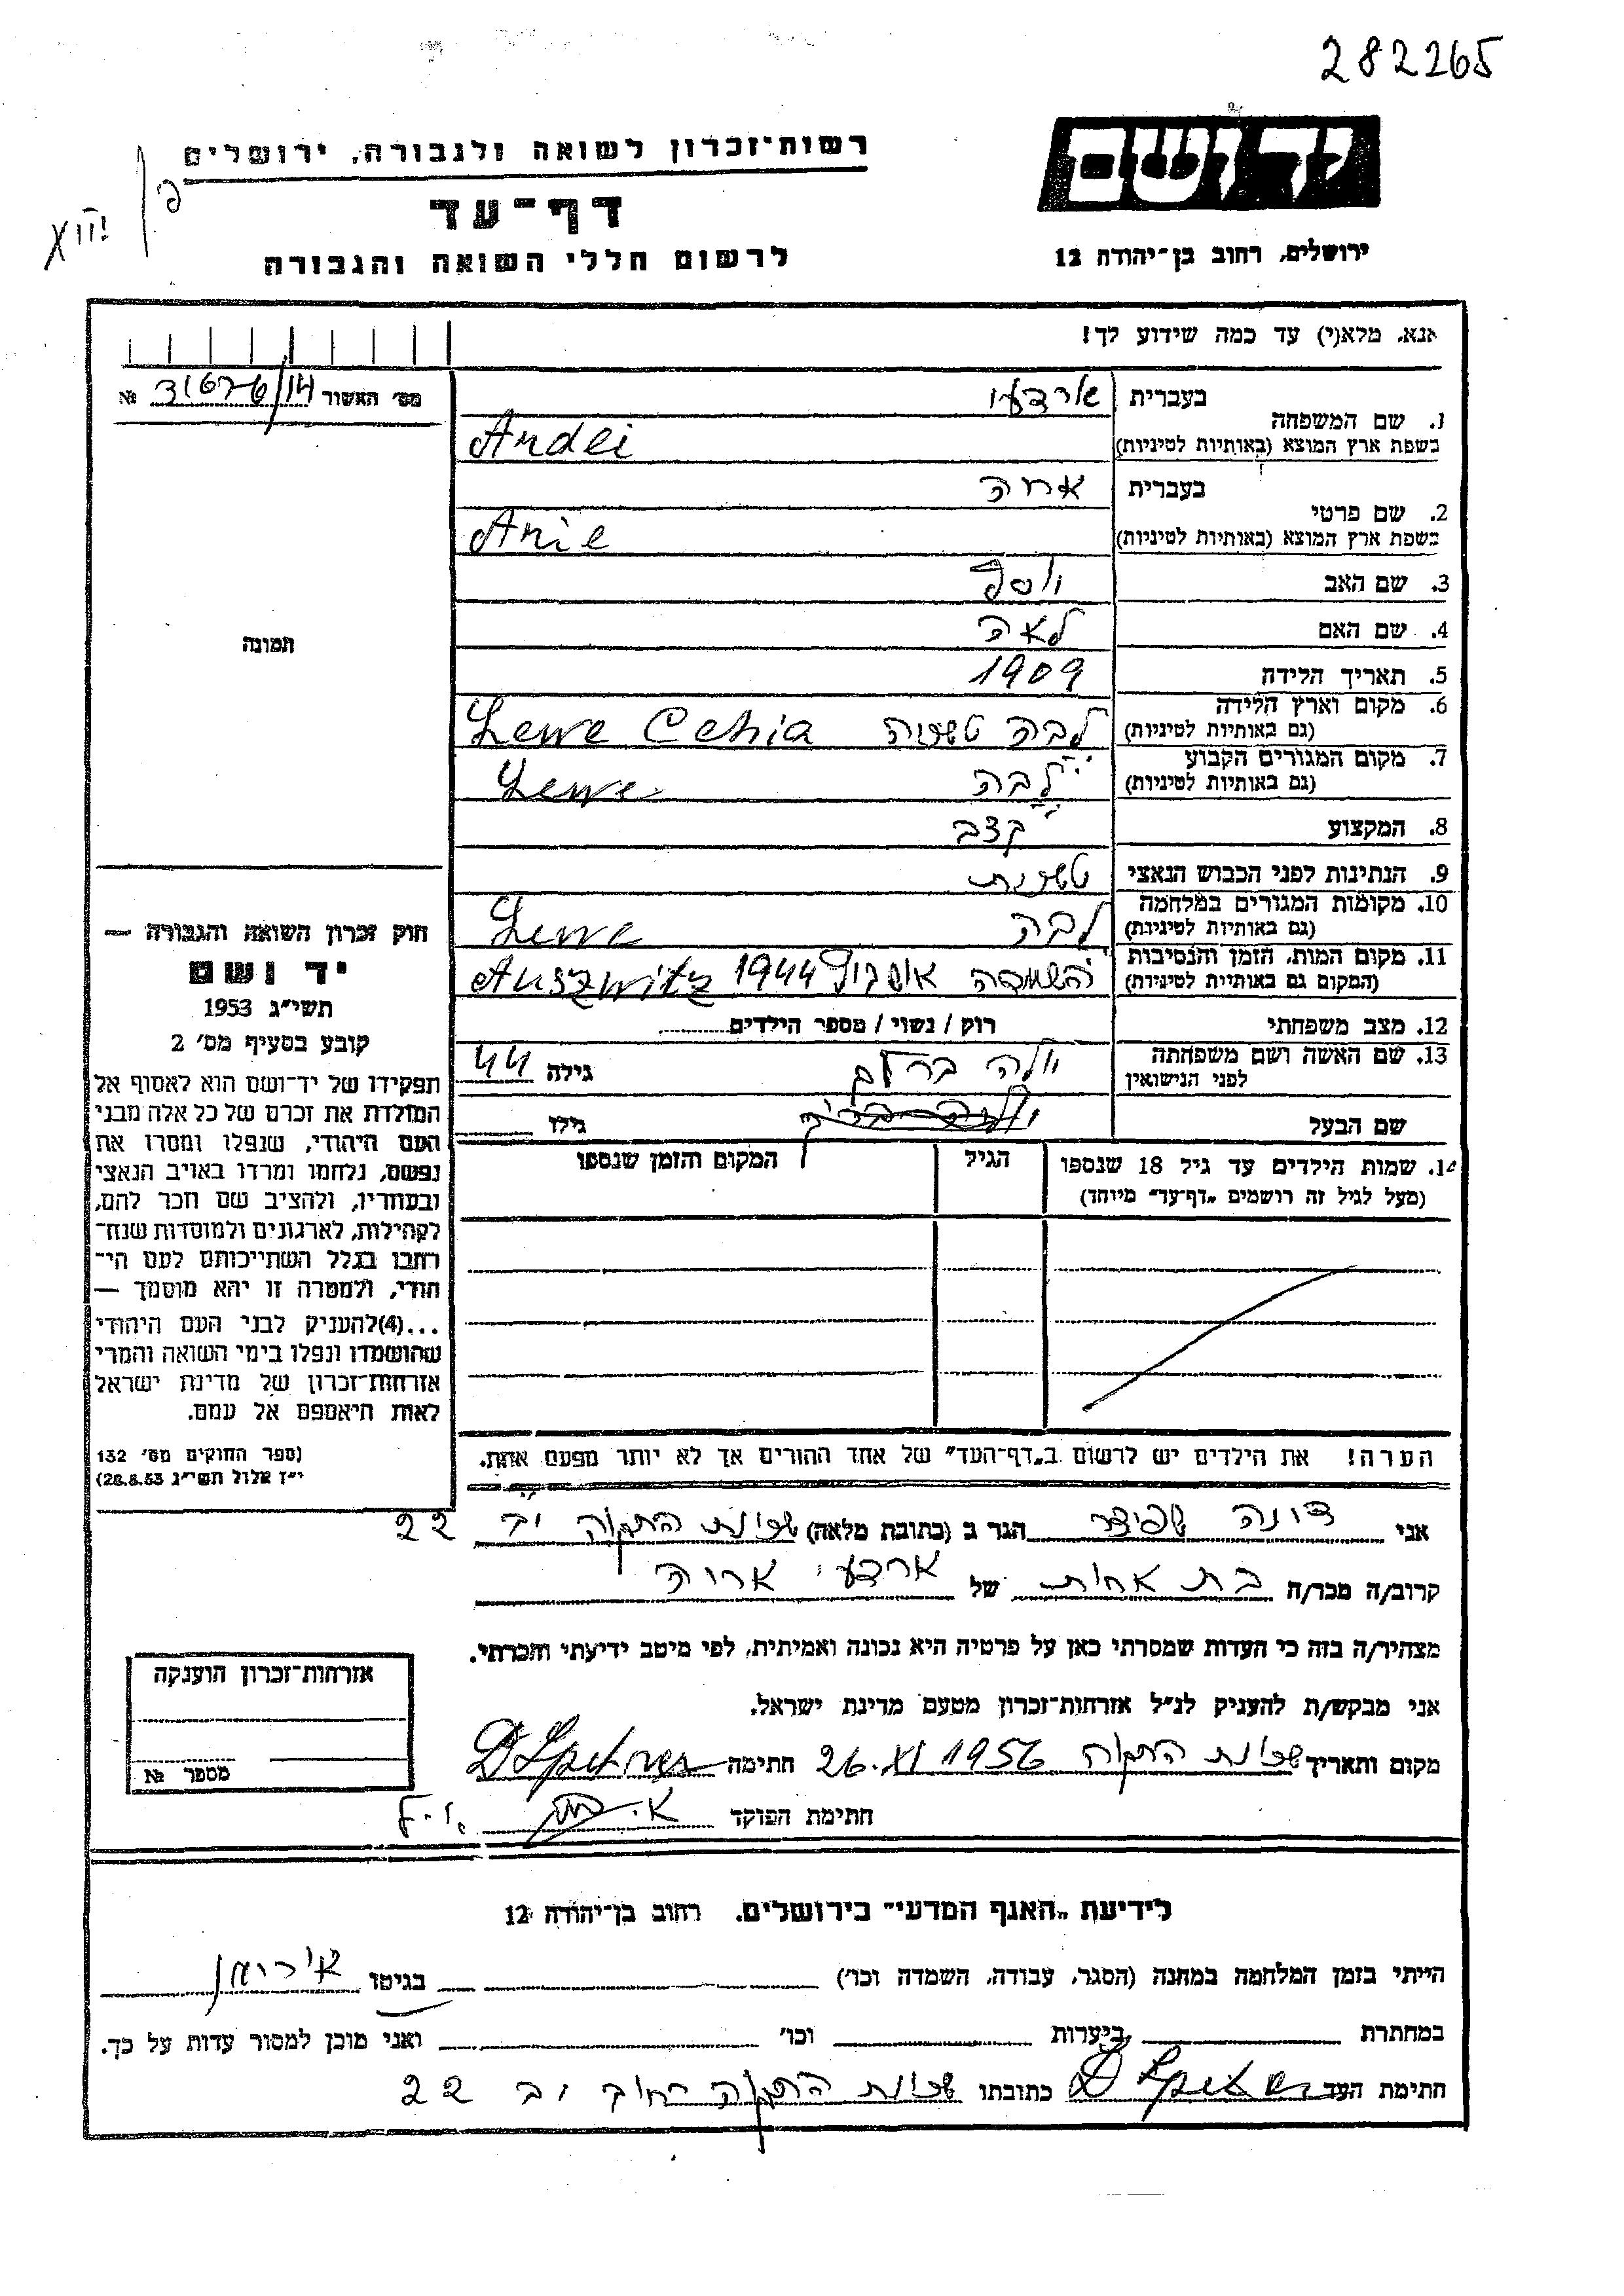 282265
רשות־זכרון לשואה ולגבורה, ירושלים
יד ושם
דף־עד
XIII
לרשום חללי השואה והגבורה
ירושלים, רחוב בן־יהודה 12
אנא, מלא(י) עד כמה שידוע לך!
מס׳ האשור №
1. שם המשפחה
בעברית
בשפת ארץ המוצא (באותיות לטיניות) Ardei
2. שם פרטי
בעברית אריה
בשפת ארץ המוצא (באותיות לטיניות) Arie
3. שם האב יוסף
4. שם האם לאה
5. תאריך הלידה 1909
6. מקום וארץ הלידה
(גם באותיות לטיניות) לבה Lewe Cehia
7. מקום המגורים הקבוע
(גם באותיות לטיניות) לבה Lewe
8. המקצוע קצב
9. הנתינות לפני הכבוש הנאצי
10. מקומות המגורים במלחמה
(גם באותיות לטיניות) לבה Lewe
11. מקום המות, הזמן והנסיבות
(המקום גם באותיות לטיניות) השמדה 1944 Auszwitz
12. מצב משפחתי רוק / נשוי / מספר הילדים
13. שם האשה ושם משפחתה
לפני הנישואין גילה 44
שם הבעל גילו
14. שמות הילדים עד גיל 18 שנספו הגיל המקום והזמן שנספו
(מעל לגיל זה רושמים „דף־עד” מיוחד)
הערה! את הילדים יש לרשום ב„דף־העד” של אחד ההורים אך לא יותר מפעם אחת.
תמונה
חוק זכרון השואה והגבורה —
יד ושם
תשי״ג 1953
קובע בסעיף מס׳ 2
תפקידו של יד־ושם הוא לאסוף אל
המולדת את זכרם של כל אלה מבני
העם היהודי, שנפלו ומסרו את
נפשם, נלחמו ומרדו באויב הנאצי
ובעוזריו, ולהציב שם וזכר להם,
לקהילות, לארגונים ולמוסדות שנח־
רבו בגלל השתייכותם לעם הי־
הודי, ולמטרה זו יהא מוסמך —
...(4)להעניק לבני העם היהודי
שהושמדו ונפלו בימי השואה והמרי
אזרחות־זכרון של מדינת ישראל
לאות היאספם אל עמם.
(ספר החוקים מס׳ 132
י״ז אלול תשי״ג 28.8.53)
אני שפיצר הגר ב (כתובת מלאה) שכונת התקוה יב 22
קרוב/ה מכר/ה בת אחות של ארדעי אריה
מצהיר/ה בזה כי העדות שמסרתי כאן על פרטיה היא נכונה ואמיתית, לפי מיטב ידיעתי והכרתי.
אני מבקש/ת להעניק לנ״ל אזרחות־זכרון מטעם מדינת ישראל.
מקום ותאריך שכונת התקוה 26.XI 1956 חתימה
חתימת הפוקד
אזרחות־זכרון הוענקה
מספר №
לידיעת „האגף המדעי” בירושלים. רחוב בן־יהודה 12
הייתי בזמן המלחמה במחנה (הסגר, עבודה, השמדה וכו׳) בגיטו
במחתרת ביערות וכו׳ ואני מוכן למסור עדות על כך.
חתימת העד כתובתו שכונת התקוה רחוב יב 22